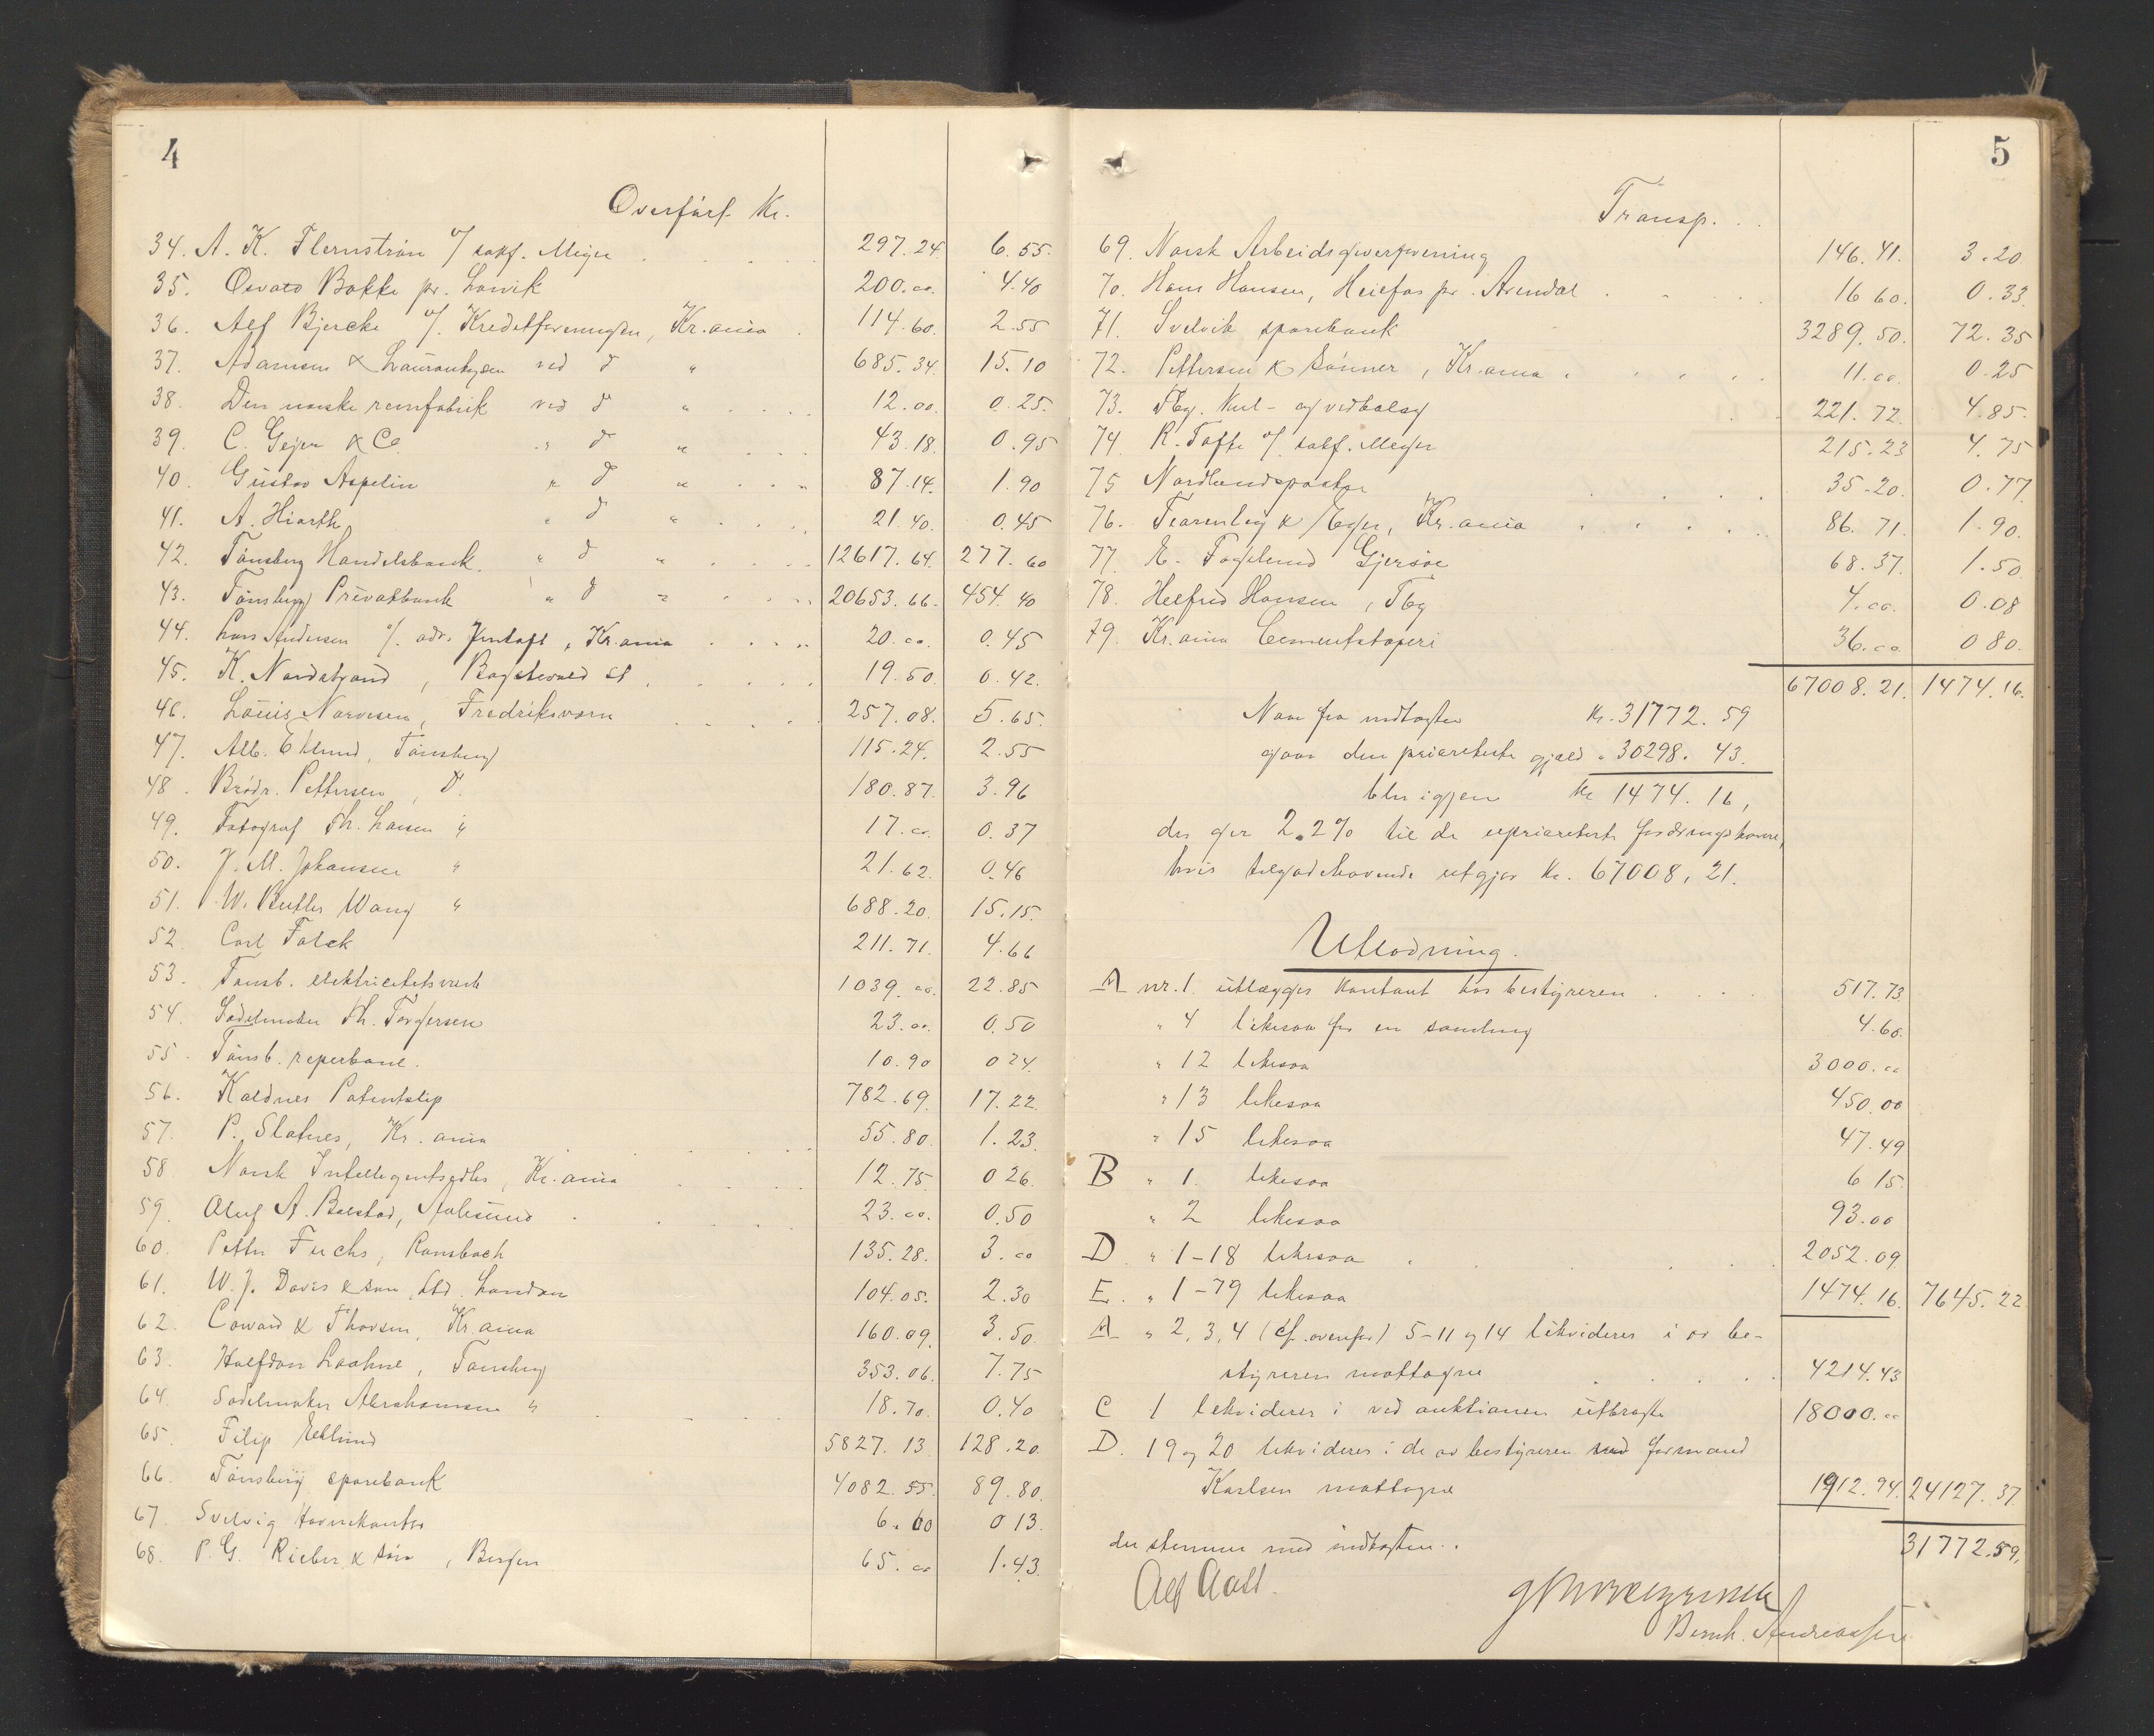 4
Overført Kr.
34. A. K. Flernstrøm o/ sakf. Meyer 297.24. 6.55.
35. Osvald Bakke pr. Larvik 200.00 4.40
36. Alf Bjercke o/. Kreditforeningen, Kr.ania 114.60. 2.55
37. Adamsen & Laurantzon ved d " 685.34. 15.10
38. Den norske remfabrik ved d " 12.00. 0.25.
39. C. Geijer & Co. " d " 43.18. 0.95
40. Gustav Aspelin " d " 87.14. 1.90
41. A. Hiorth " d " 21.40. 0.45
42. Tønsberg Handelsbank. " d " 12617.64. 277.60
43. Tønsberg Privatbank " d " 20653.66. 454.40
44. Lars Andersen o/. adv. , Kr.ania 20.00. 0.45
45. K. Nordstrand, st. 19.50. 0.42.
46. Louis Narvesen, Fredriksværn 257.08. 5.65.
47. Alb. Eklund, Tønsberg 115.24. 2.55
48. Brødr. Pettersen, D. 180.87. 3.96
49. Fotograf Th. Larsen " 17.00. 0.37
50. J. M. Johansen " 21.62. 0.46
51. W. Butler Wang " 688.20. 15.15.
52. Carl Falck 211.71. 4.66
53. Tønsb. elektricitetsverk 1039.00. 22.85
54. Sadelmaker Th. Torgersen 23.00. 0.50
55. Tønsb. reperbane. 10.90 0 24.
56. Kaldnes Patentslip 782.69. 17.22.
57. P. Slatnes, Kr.ania 55.80. 1.23.
58. Norsk Intelligentsedler, Kr.ania 12.75. 0 26.
59. Oluf A. Bolstad, Aalesund 23.00. 0.50
60. Petter Fuchs, Ransbach 135.28. 3.00
61. W. J. Davis & son Ltd. London 104.05. 2.30
62. Coward & Thovsen, Kr.ania 160.09. 3.50.
63. Halfdan Laahne, Tønsberg 353.06. 7.75
64. Sadelmaker Abrahamsen " 18.70. 0.40
65. Filip Eklund 5827.13 128.20.
66. Tønsberg sparebank 4082.55. 89.80.
67. Svelvig Havnekontor 6.00 0 13.
68. P. G. Rieber & søn, Bergen 65.00 1.43.
5
Transp.
69. Norsk Arbeidsgiverforening 146.41. 3.20
70. Hans Hansen, pr. Arendal 16 60. 0.33.
71. Svelvik sparebank 3289.50. 72.35
72. Pettersen & sønner, Kr.ania 11.00. 0.25
73. Tbg. Kul- og vedbolag 221.72. 4.85.
74. R. Tofte o/. sakf. Meyer 215.23 4.75
75 Nordlandsposten 35.20. 0.77.
76. Fearnley & Eger, Kr.ania 86.71. 1.90.
77. E. Fogelund Gjersøe 68.37. 1.50.
78. Helfred Hansen, Tbg 4.00. 0.08
79. Kr.ania Cementstøperi 36.00. 0 80.
67008.21. 1474.16.
Naar fra indtægten Kr. 31772.59
gaar den prioriterte gjæld " 30298.43.
blir igjen Kr 1474.16,
der gir 2.2% til de uprioriterte fordringshavere,
hvis tilgodehavende utgjør Kr. 67008,21.
Utlodning.
A nr. 1. utlægges kontant hos bestyreren 517.73.
" 4 likesaa for en samling 4.60.
" 12 likesaa 3000.00
" 13 likesaa 450.00
" 15 likesaa 47.49
B " 1. likesaa 6 15.
" 2 likesaa 93.00
D " 1-18 likesaa 2052.09
E. " 1-79 likesaa 1474.16. 7645.22
A " 2, 3, 4 (cf. ovenfor) 5-11 og 14 likvideres i av be-
styreren mottagne 4214.43
C 1 likvideres i ved auktionen utbragte 18000.00
D. 19 og 20 likvideres i de av bestyreren med formand
Karlsen mottagne 1912.94. 24127.37.
der stemmer med indtægten. 31772.59.
Alf Aall.
Bernh. Andreassen